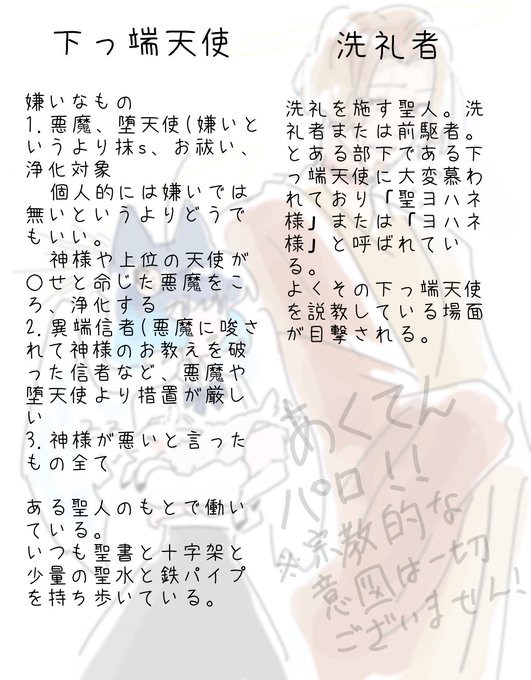 下っ端天使
嫌いなもの
1.悪魔、堕天使(嫌いと
いうより抹s、お祓い、
浄化対象
個人的には嫌いでは
無いというよりどうで
もいい。
神様や上位の天使が
〇せと命じた悪魔をこ
ろ、浄化する
2.異端信者(悪魔に唆さ
れて神様のお教えを破
った信者など、悪魔や
堕天使より措置が厳し
い
3.神様が悪いと言った
もの全て
ある聖人のもとで働い
ている。
いつも聖書と十字架と
少量の聖水と鉄パイプ
を持ち歩いている。
洗礼者
洗礼を施す聖人。洗
礼者または前駆者。
とある部下である下
っ端天使に大変慕わ
れており「聖ヨハネ
様」または「ヨハネ
様」と呼ばれてい
る。
よくその下っ端天使
を説教している場面
が目撃される。
あくてん
パロ!!
※宗教的な
意図は一切
ございません!